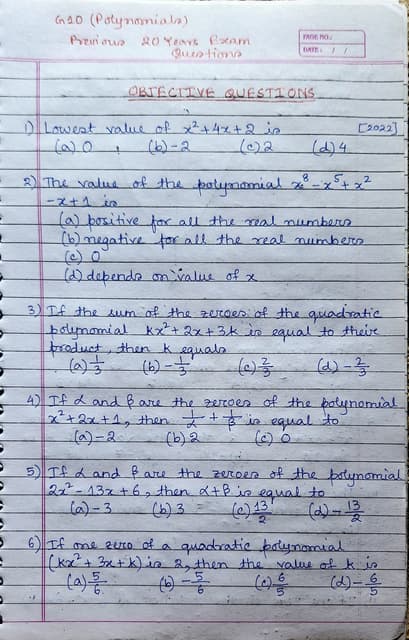 G10 (Polynomials)
Previous 20 Years Exam
Questions
PAGE NO.:
DATE: / /
OBJECTIVE QUESTIONS
1) Lowest value of x²+4x+2 is [2022]
(a) 0 (b) -2 (c) 2 (d) 4
2) The value of the polynomial x⁸-x⁵+x²
-x+1 is
(a) positive for all the real numbers
(b) negative for all the real numbers
(c) 0
(d) depends on value of x
3) If the sum of the zeroes of the quadratic
polynomial kx²+2x+3k is equal to their
product, then k equals
(a) 1/3 (b) -1/3 (c) 2/3 (d) -2/3
4) If α and β are the zeroes of the polynomial
x²+2x+1, then 1/α + 1/β is equal to
(a) -2 (b) 2 (c) 0
5) If α and β are the zeroes of the polynomial
2x²-13x+6, then α+β is equal to
(a) -3 (b) 3 (c) 13/2 (d) -13/2
6) If one zero of a quadratic polynomial
(kx²+3x+k) is 2, then the value of k is
(a) 5/6 (b) -5/6 (c) 6/5 (d) -6/5